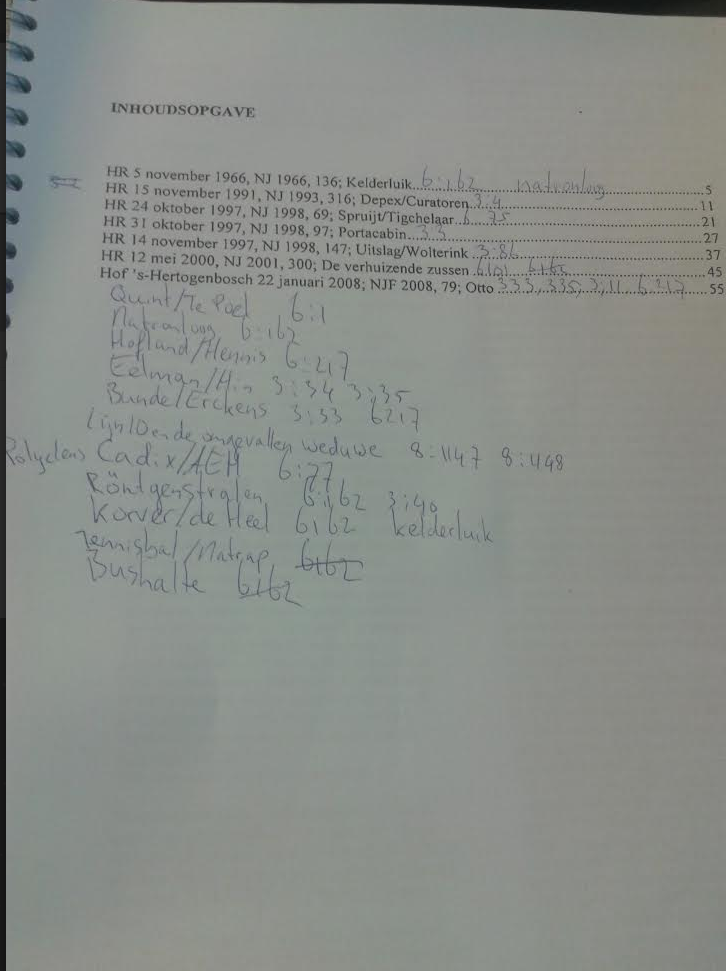 INHOUDSOPGAVE
HR 5 november 1966, NJ 1966, 136; Kelderluik 6:162 natronloog 5
HR 15 november 1991, NJ 1993, 316; Depex/Curatoren 3:4 11
HR 24 oktober 1997, NJ 1998, 69; Spruijt/Tigchelaar 6 75 21
HR 31 oktober 1997, NJ 1998, 97; Portacabin 3:3 27
HR 14 november 1997, NJ 1998, 147; Uitslag/Wolterink 3:86 37
HR 12 mei 2000, NJ 2001, 300; De verhuizende zussen 6:101 6:165 45
Hof 's-Hertogenbosch 22 januari 2008; NJF 2008, 79; Otto 3:33, 3:35, 3:11 6:217 55
Quint/Te Poel 6:1
Natronloog 6:162
Hofland/Hennis 6:217
Eelman/Hin 3:34 3:35
Bunde/Erckens 3:33 6217
Lijn/Oende ongevallen weduwe 8:1147 8:1148
Polyclens Cadix/AEH 6:77
Röntgenstralen 6:162 3:40
Korver/de Heel 6162 kelderluik
Tennisbal/Natrap 6162
Bushalte 6162